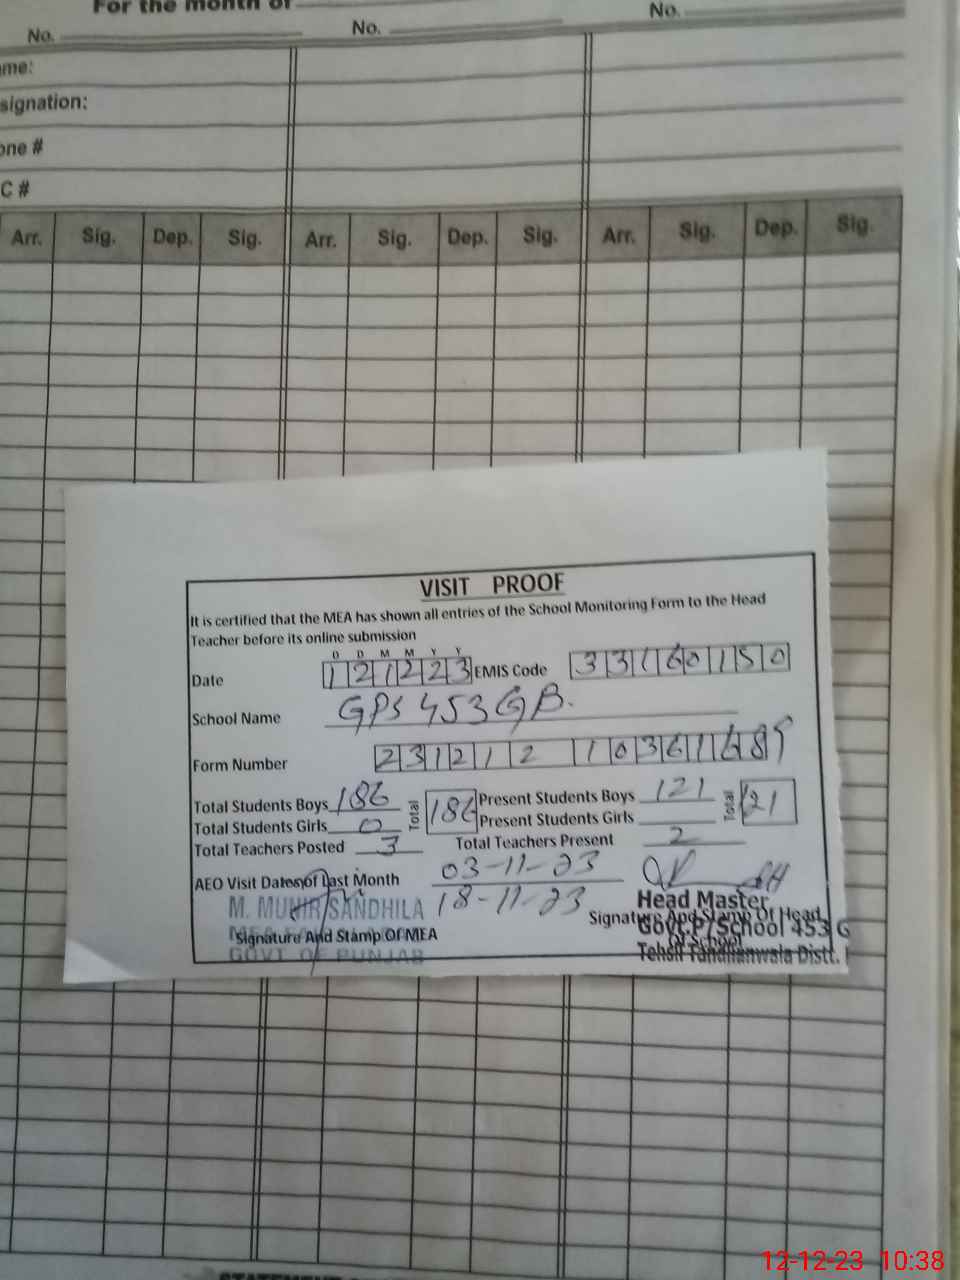 For the month of
No. No. No.
me:
signation:
one #
C #
Arr. Sig. Dep. Sig. Arr. Sig. Dep. Sig. Arr. Sig. Dep. Sig.
VISIT PROOF
It is certified that the MEA has shown all entries of the School Monitoring Form to the Head
Teacher before its online submission
D D M M Y Y
Date 121223 EMIS Code 33160150
School Name GPS 453 GB.
Form Number 231212 10361689
Total Students Boys 186 Total 186 Present Students Boys 121 Total 121
Total Students Girls 0 Present Students Girls
Total Teachers Posted 3 Total Teachers Present 2
AEO Visit Dates of Last Month 03-11-23
18-11-23
M. MUNIR SANDHILA
Signature And Stamp Of MEA
GOVT OF PUNJAB
Head Master
Signature And Stamp Of Head
Of School
Govt. P/School 453 G
Tehsil Tandlianwala Distt.
12-12-23 10:38